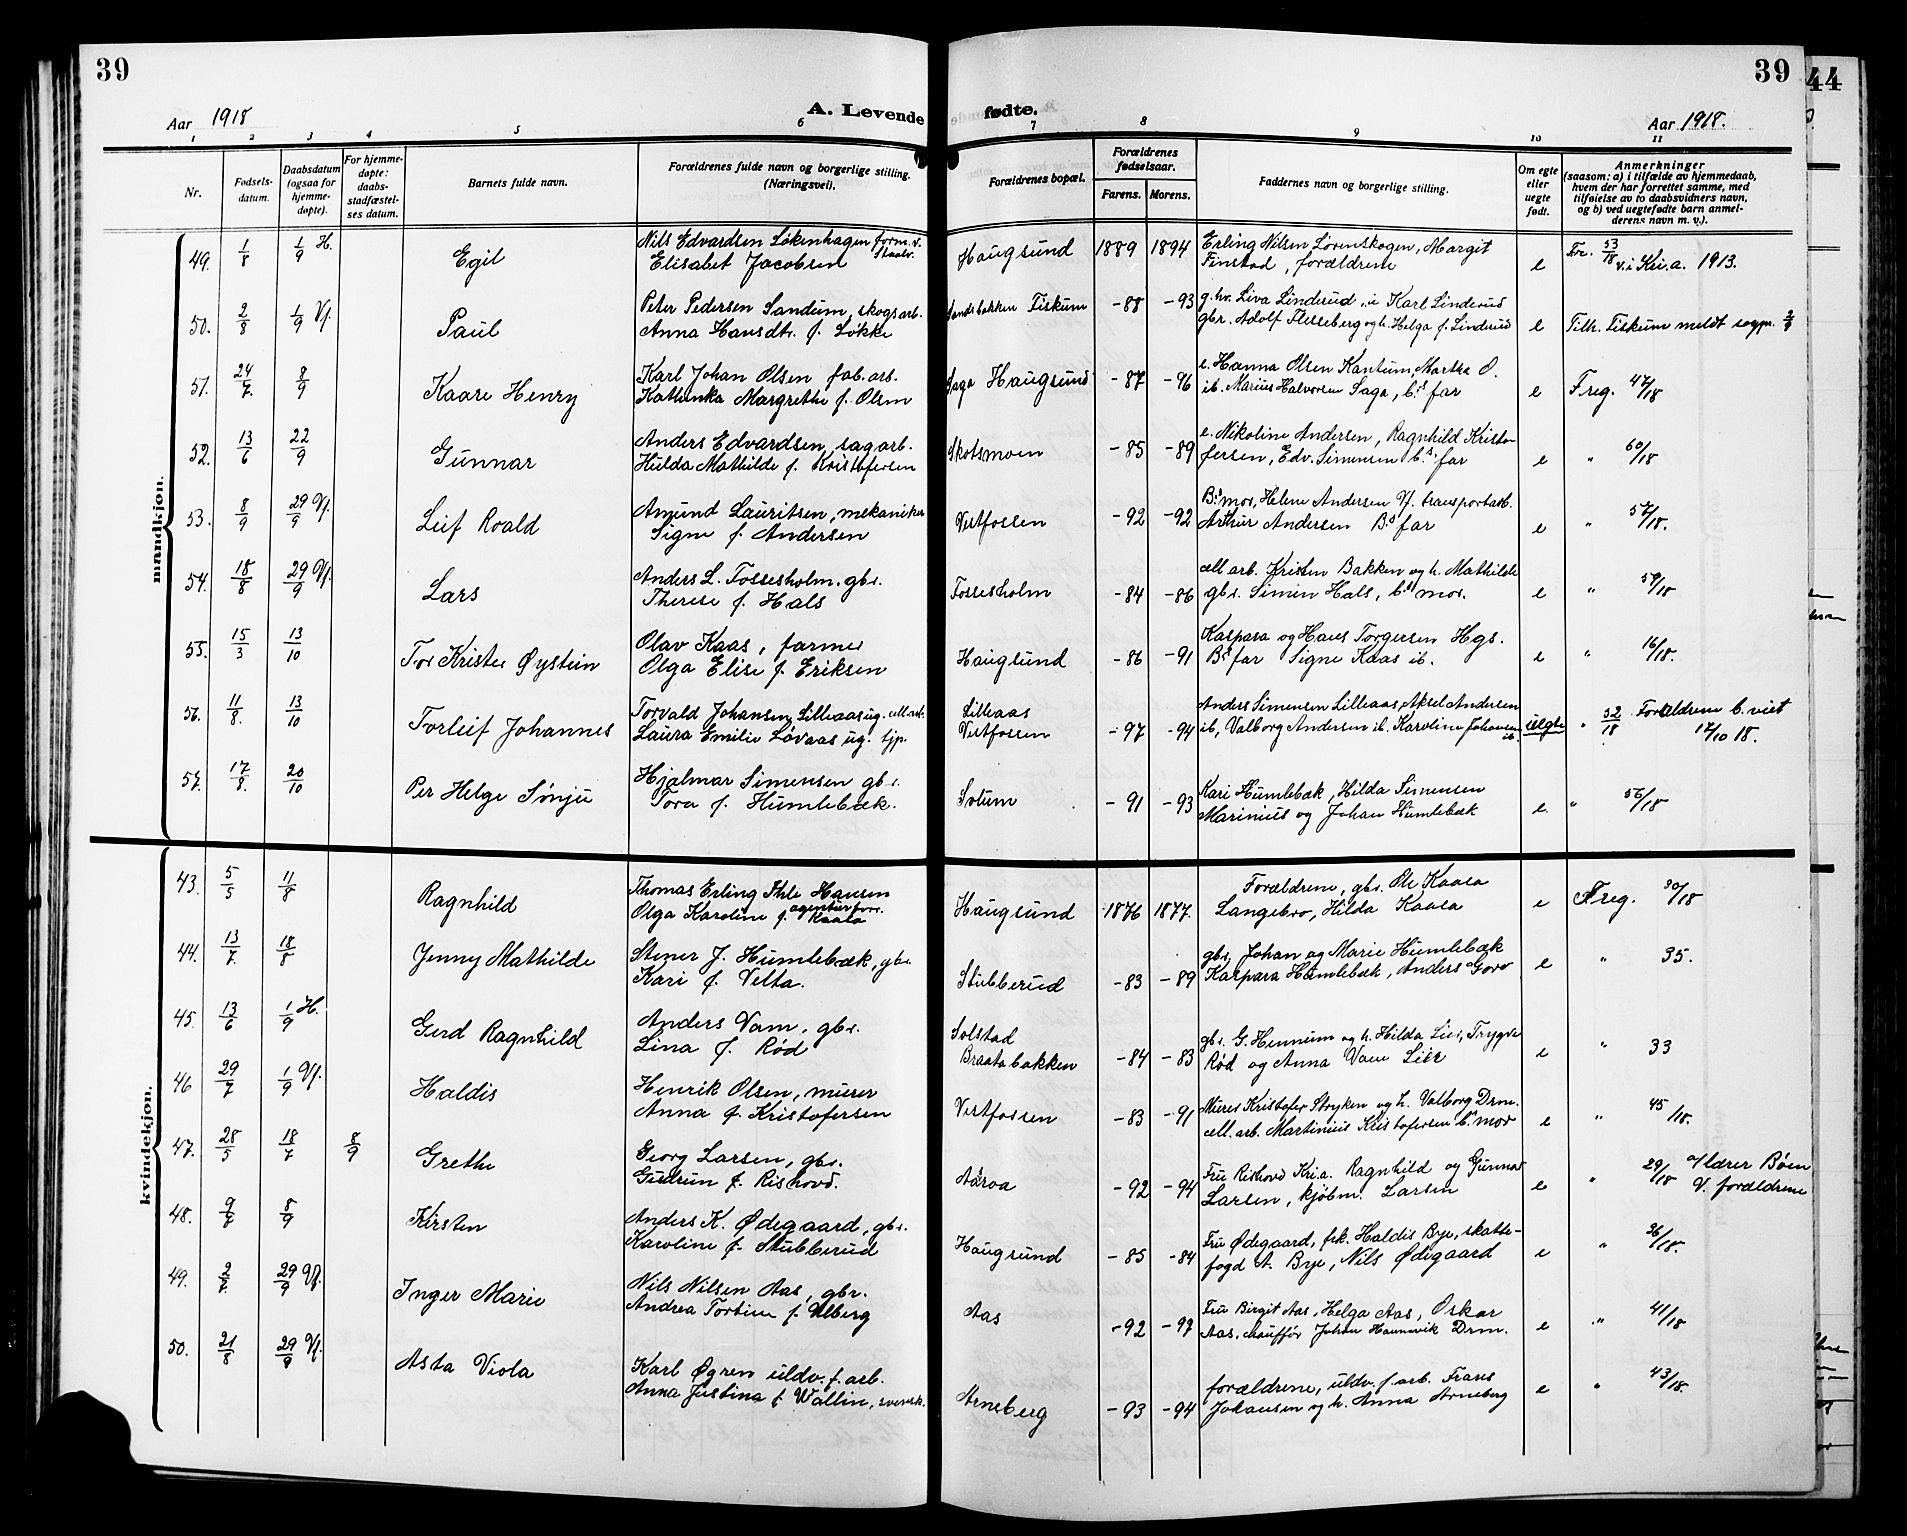 39
39
44
Aar 1918
A. Levende
fødte.
Aar 1918.
1 2 3 4 5 6 7 8 9 10 11
Nr.
Fødsels-
datum.
Daabsdatum
(ogsaa for
hjemme-
døpte).
For hjemme-
døpte:
daabs-
stadfæstel-
ses datum.
Barnets fulde navn.
Forældrenes fulde navn og borgerlige stilling.
(Næringsvei).
Forældrenes bopæl.
Forældrenes
fødselsaar.
Farens. Morens.
Faddernes navn og borgerlige stilling.
Om egte
eller
uegte
født.
Anmerkninger
(saasom: a) i tilfælde av hjemmedaab,
hvem der har forrettet samme, med
tilføielse av to daabsvidners navn,
og b) ved uegtefødte barn anmel-
derens navn m. v.).
mandkjøn.
49. 1/8 1/9 H. Egil
Nils Edvardsen Løkenhagen form. v. Staalv.
Elisabet Jacobsen
Haugsund 1889 1894
Erling Nilsen Lørenskogen, Margit
Finstad, forældrene
e Fr. 53/18 v. i Kri.a. 1913.
50. 2/8 1/9 Vf. Paul
Peter Pedersen Sandum, skogsarb.
Anna Hansdtr. f. Løkke
Sandsbakken Fiskum -88 -93
g.hv. Liva Linderud, i Karl Linderud
gbr. Adolf Flesseberg og h. Helga f. Linderud
e Tilh. Fiskum meldt sogpr. 2/9
51. 24/7. 8/9 Kaare Henry
Karl Johan Olsen fab. arb.
Kathinka Margrethe f. Olsen
Saga Haugsund -87 -96
e. Hanna Olsen Kantum, Martha O.
ib. Marius Halvorsen Saga, b.s far
e Freg. 47/18
52. 13/6 22/9 Gunnar
Anders Edvardsen, sagarb.
Hulda Mathilde f. Kristofersen
Skotsmoen -85 -89
e. Nikoline Andersen, Ragnhild Kristo-
fersen, Edv. Simensen b.s far
e " 60/18
53. 8/9 29/9 Vf. Leif Roald
Amund Lauritsen, mekaniker
Signe f. Andersen
Vestfossen -92 -92
B.s mor, Helene Andersen Vf. transportarb.
Arthur Andersen B.s far
e " 57/18.
54. 18/8 29/9 Vf. Lars
Anders L. Fossesholm. gbr.
Therese f. Hals
Fossesholm -84 -86
cell. arb. Kristen Bakken og h. Mathilde
gbr. Simen Hals, b.s mor.
e " 59/18
55. 15/3 13/10 Tor Krister Øystein
Olav Kaas, farmer
Olga Elise f. Eriksen
Haugsund -86 -91
Kaspara og Hans Torgersen Hgs.
B.s far Signe Kaas ib.
e " 16/18.
56. 11/8. 13/10 Torleif Johannes
Torvald Johansen Lilleaas ug. cell. arb.
Laura Emilie Løvaas ug. tjp.
Lilleaas
Vestfossen -97 -94
Anders Simensen Lilleaas, Aksel Andersen
ib, Valborg Andersen ib. Karoline Johansen ib.
uegte " 52/18 Forældrene b. viet
12/10 18.
57. 17/8. 20/10 Per Helge Sønju
Hjalmar Simensen gbr.
Tora f. Humlebæk.
Sotum -91 -93
Kari Humlebæk, Hilda Simensen
Marinius og Johan Humlebæk
e. " 56/18
kvindekjøn.
43. 5/5 11/8 Ragnhild
Thomas Erling Ihle Hansen
Olga Karoline f. Kaasa agenturforr.
Haugsund 1876 1877.
Forældrene, gbr. Ole Kaasa
Langebro, Hilda Kaasa
e Freg. 30/18
44. 13/7. 18/8 Jenny Mathilde
Stener J. Humlebæk, gbr.
Kari f. Velta.
Stubberud -83 -89
gbr. Johan og Marie Humlebæk
Kaspara Humlebæk, Anders Goro
e " 35.
45. 13/6 1/9 H. Gerd Ragnhild
Anders Vam, gbr.
Lina f. Rød
Solstad
Braatabakken -84 -83
gbr. G. Hennum og h. Hilda Lier, Trygve
Rød og Anna Vam Lier
e " 33
46 29/7 1/9 Vf. Haldis
Henrik Olsen, murer
Anna f. Kristofersen
Vestfossen -83 -91
Murer Kristofer Stryken og h. Valborg Drm.
cell. arb. Martinius Kristofersen b.s mor
e " 45/18.
47. 28/5 18/7 8/9 Grethe
Georg Larsen, gbr.
Gudrun f. Rishovd.
Aaroa -92 -94
Fru Rishovd Kri.a. Ragnhild og Gunnar
Larsen, kjøbm. Larsen
e " 29/18 v/lærer Bøen
V. forældrene
48. 9/7 8/9 Kirsten
Anders K. Ødegaard, gbr.
Karoline f. Stubberud
Haugsund -85 -84
Fru Ødegaard, frk. Haldis Bye, skatte-
fogd A. Bye, Nils Ødegaard
e " 36/18.
49. 2/7. 29/9 Vf. Inger Marie
Nils Nilsen Aas, gbr.
Andrea Tortine f. Ulberg
Aas -92 -97
Fru Birgit Aas, Helga Aas, Oskar
Aas, chauffør Johan Haunevik Drm.
e " 41/18
50. 21/8 29/9 Vf. Asta Viola
Karl Øgren uldv. f. arb.
Anna Justina f. Wallin, svensk.
Arneberg -93 -94
forældrene, uldv. f. arb. Frans
Johansen og h. Anna Arneberg
e " 43/18.